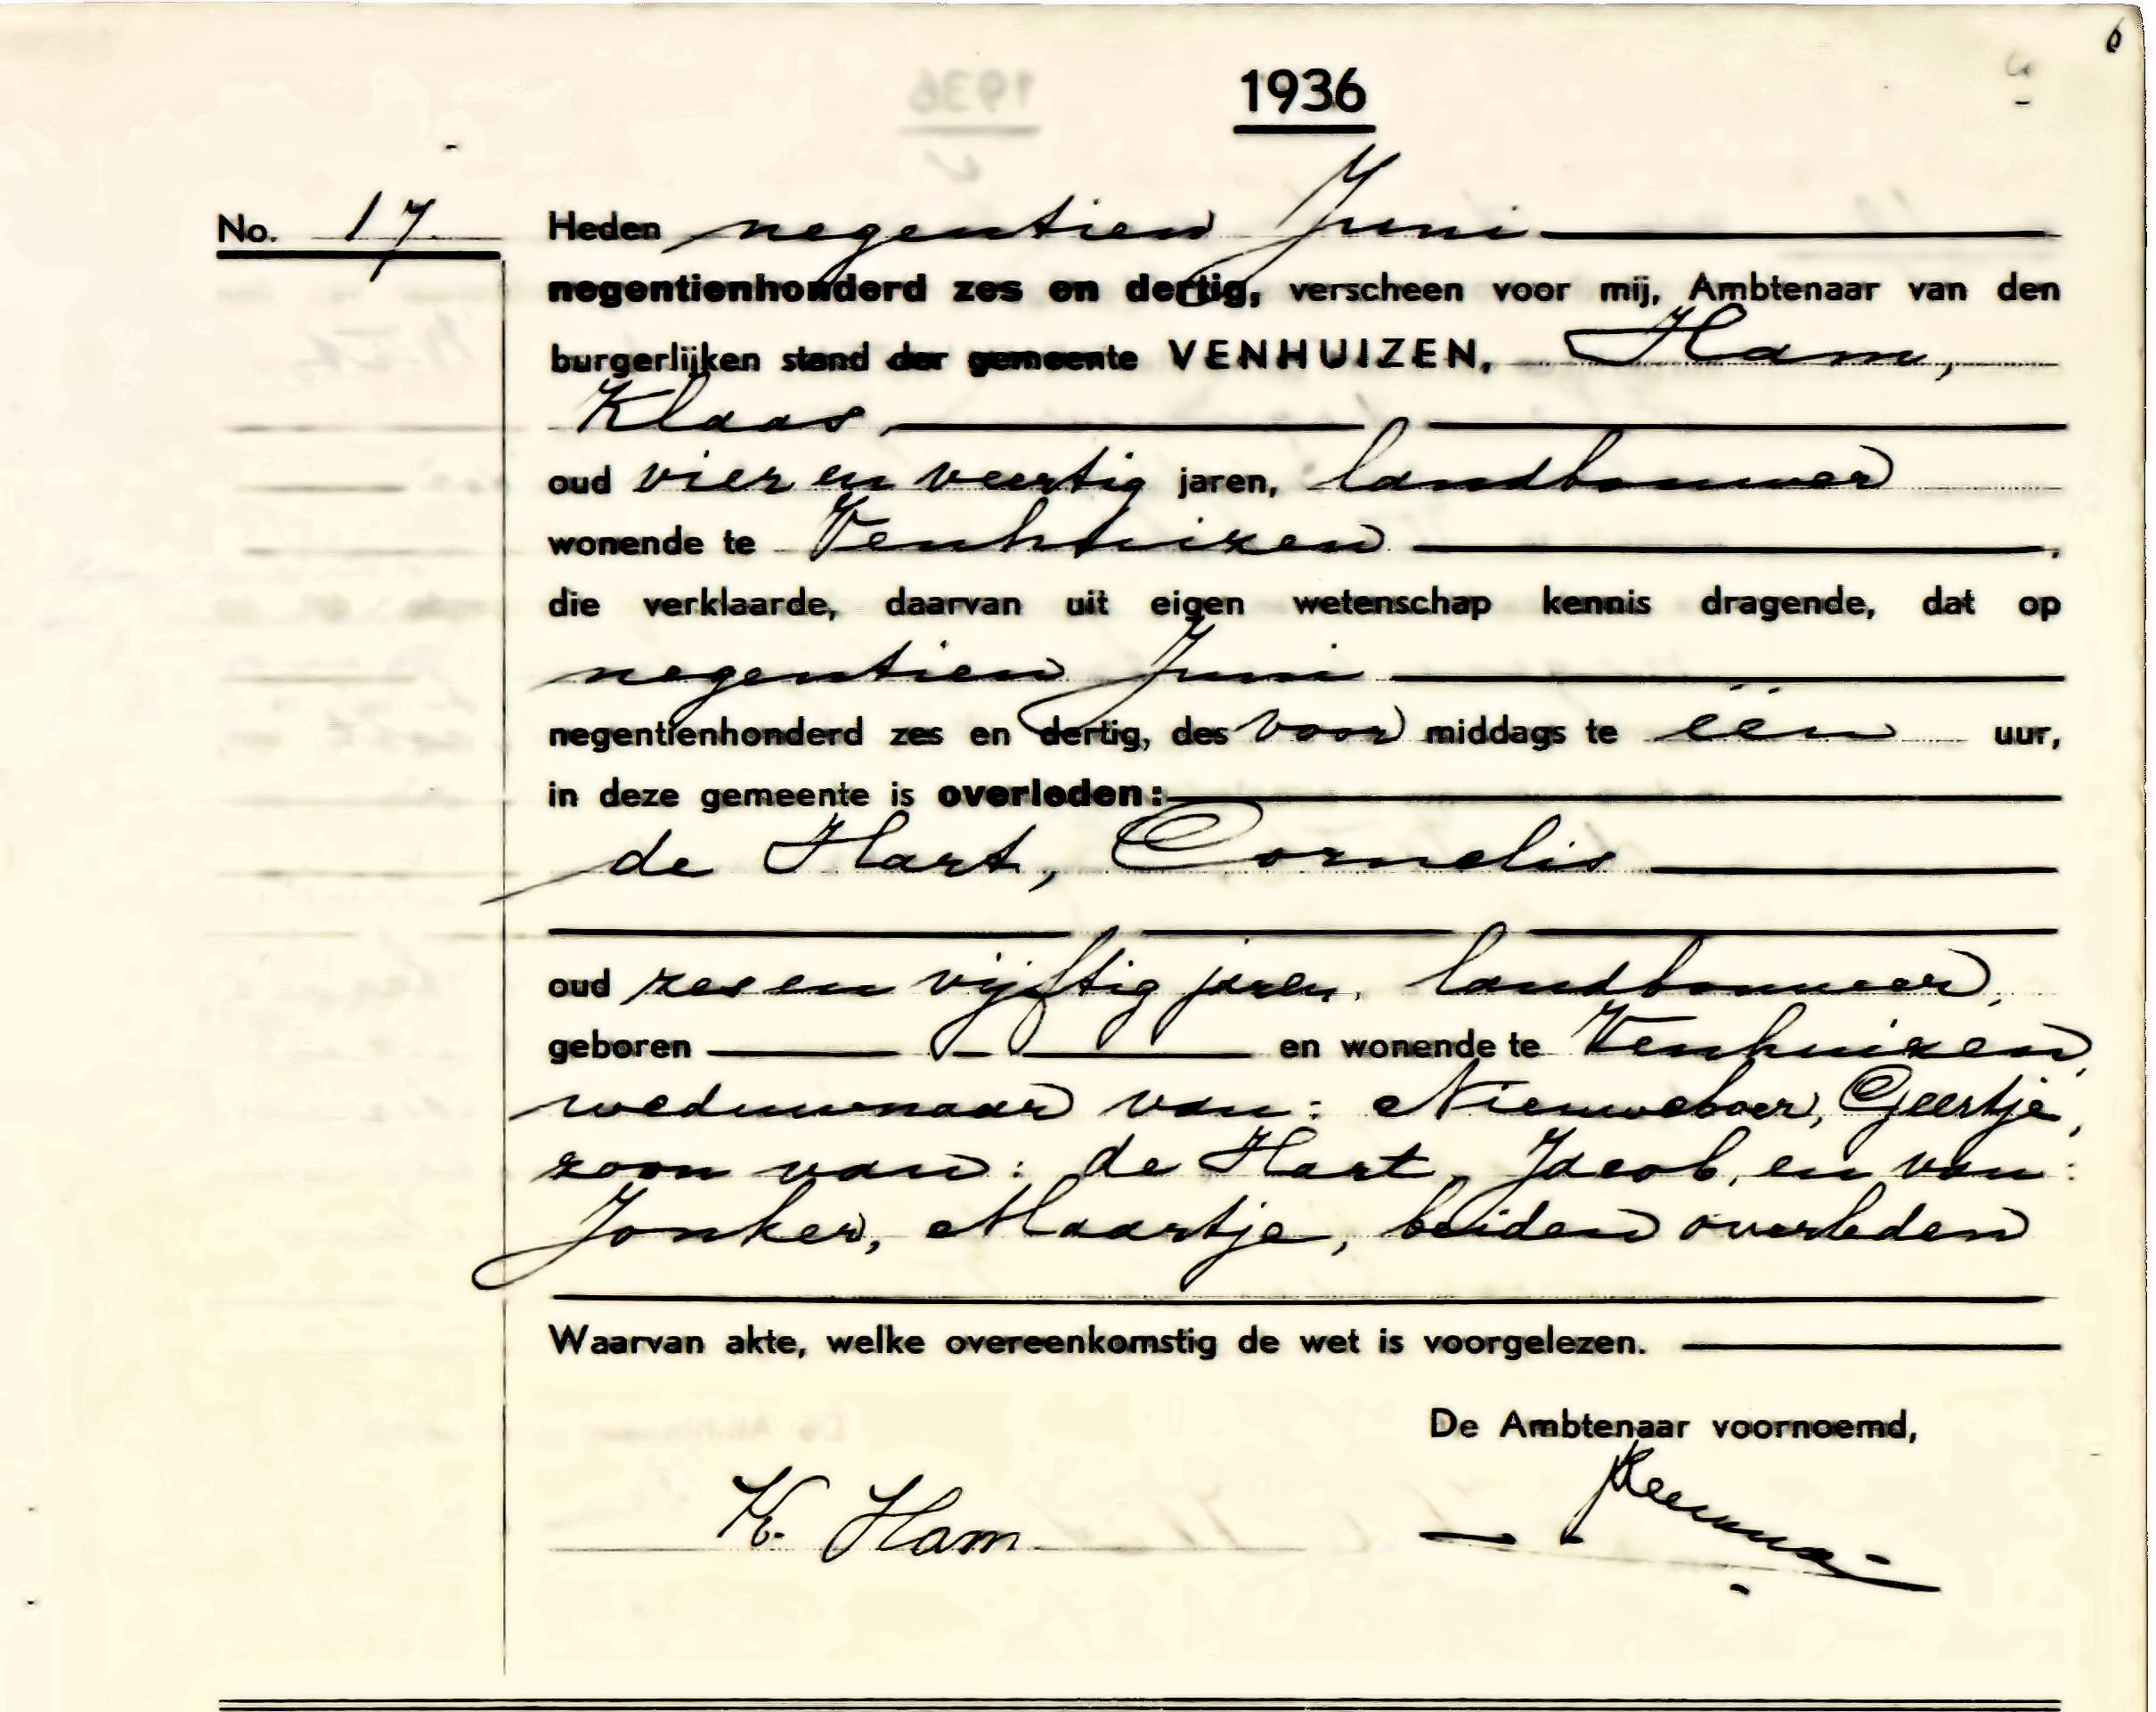 6
1936
No. 17.
Heden negentien Juni
negentienhonderd zes en dertig, verscheen voor mij, Ambtenaar van den
burgerlijken stand der gemeente VENHUIZEN, Ham,
Klaas,
oud vier en veertig jaren, landbouwer
wonende te Venhuizen,
die verklaarde, daarvan uit eigen wetenschap kennis dragende, dat op
negentien Juni
negentienhonderd zes en dertig, des voor middags te één uur,
in deze gemeente is overleden:
de Hart, Cornelis
oud zes en vijftig jaren, landbouwer,
geboren en wonende te Venhuizen,
weduwnaar van: Nieuweboer, Geertje,
zoon van: de Hart, Jacob, en van:
Jonker, Maartje, beiden overleden
Waarvan akte, welke overeenkomstig de wet is voorgelezen.
De Ambtenaar voornoemd,
K. Ham